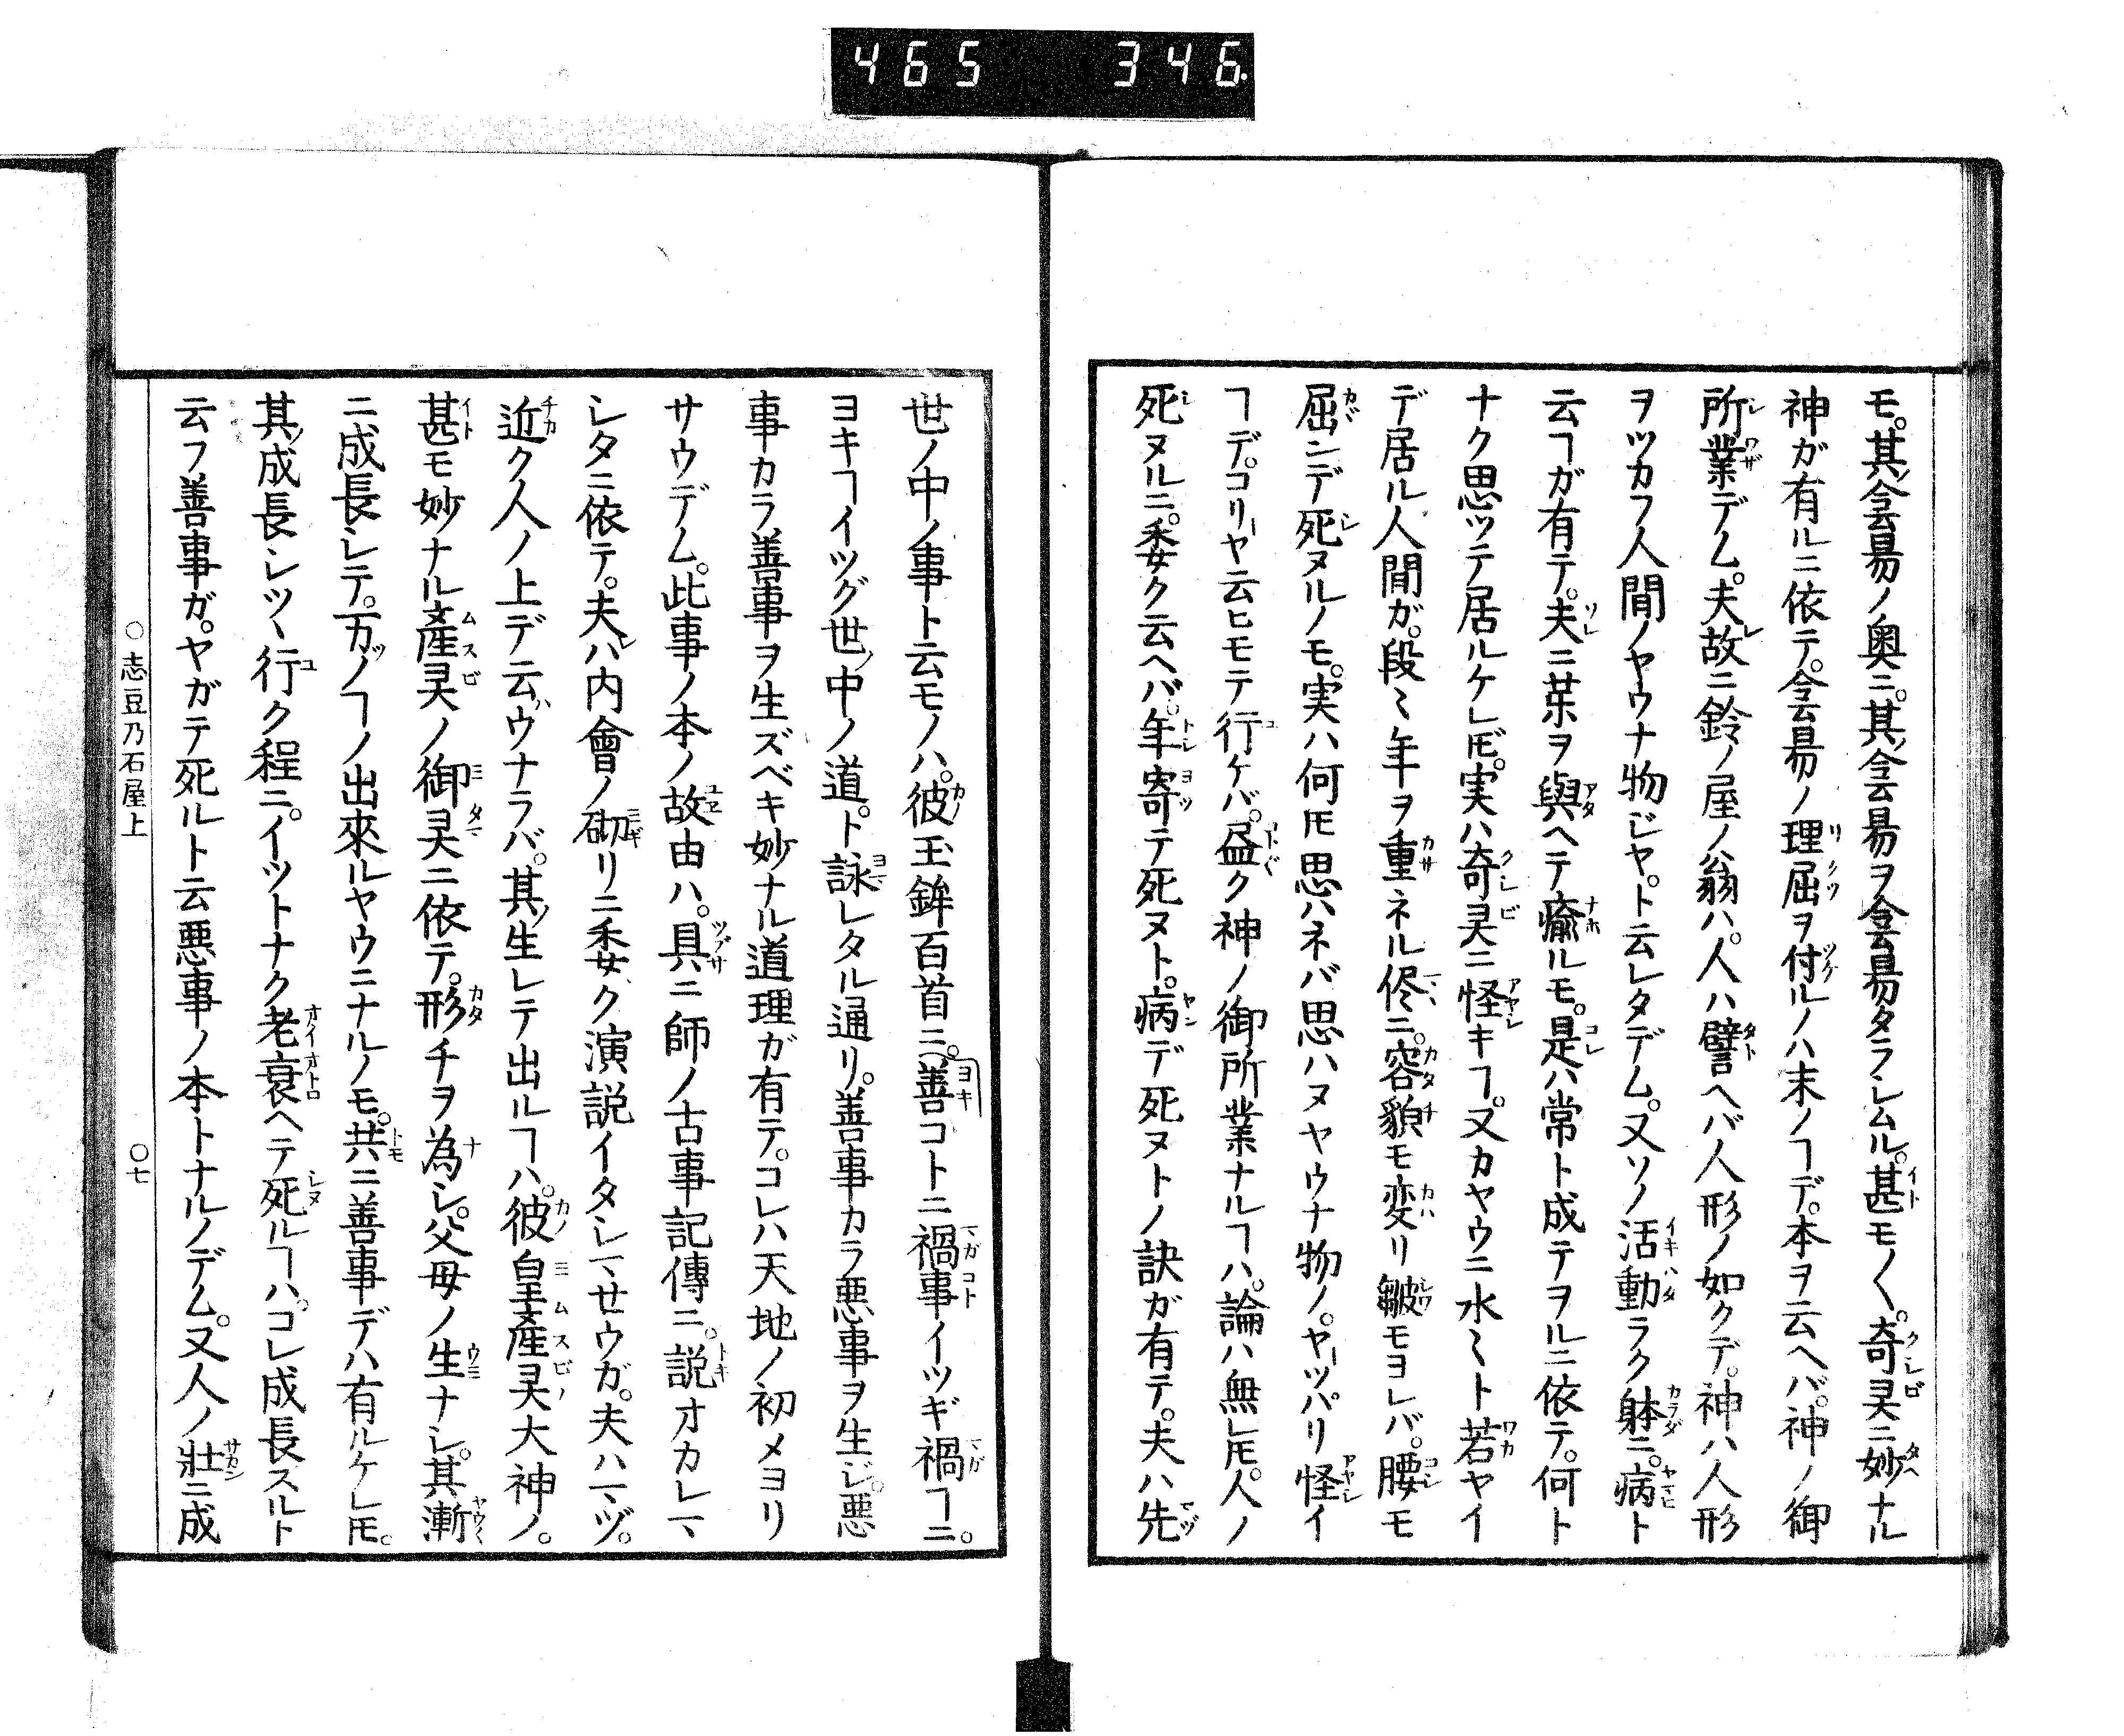 465 346.
モ。其ノ侌昜ノ奥ニ。其ノ侌昜ヲ侌昜タラシムル。甚モ〳〵。奇灵ニ妙ナル
神ガ有ルニ依テ。侌昜ノ理屈ヲ付ルノハ末ノヿデ。本ヲ云ヘバ。神ノ御
所業デム。夫故ニ鈴ノ屋ノ翁ハ。人ハ譬ヘバ人形ノ如クデ。神ハ人形
ヲツカフ人間ノヤウナ物ジヤ。ト云レタデム。又ソノ活動ラク躰ニ。病ト
云ヿガ有テ。夫ニ薬ヲ與ヘテ瘉ルモ。是ハ常ト成テヲルニ依テ。何ト
ナク思ツテ居ルケレ𪜈。実ハ奇灵ニ怪キヿ。又カヤウニ水〻ト若ヤイ
デ居ル人間ガ。段〻年ヲ重ネル侭ニ。容貌モ変リ皺モヨレバ。腰モ
屈ンデ死ヌルノモ。実ハ何𪜈思ハネバ思ハヌヤウナ物ノ。ヤツパリ怪イ
ヿデ。コリヤ云ヒモテ行ケバ。盡ク神ノ御所業ナルヿハ。論ハ無レ𪜈。人ノ
死ヌルニ。委ク云ヘバ。年寄テ死ヌト。病デ死ヌトノ訣ガ有テ。夫ハ先
世ノ中ノ事ト云モノハ。彼玉鉾百首ニ。善コトニ禍事イツギ禍ヿニ。
ヨキヿイツグ世ノ中ノ道。ト詠レタル通リ。善事カラ悪事ヲ生ジ。悪
事カラ善事ヲ生ズベキ妙ナル道理ガ有テ。コレハ天地ノ初メヨリ
サウデム。此事ノ本ノ故由ハ。具ニ師ノ古事記傳ニ。説オカレマ
シタニ依テ。夫ハ内會ノ砌リニ委ク演説イタシマせウガ。夫ハマヅ。
近ク人ノ上デ云ハウナラバ。其ノ生レテ出ルヿハ。彼皇産灵大神ノ。
甚モ妙ナル産灵ノ御灵ニ依テ。形チヲ為シ。父母ノ生ナシ。其漸
ニ成長シテ。万ノヿノ出來ルヤウニナルノモ。共ニ善事デハ有ルケレ𪜈。
其ノ成長シツヽ行ク程ニ。イツトナク老衰ヘテ死ルヿハ。コレ成長スルト
云フ善事ガ。ヤガテ死ルト云悪事ノ本トナルノデム。又人ノ壯ニ成
○志豆乃石屋上 ○七